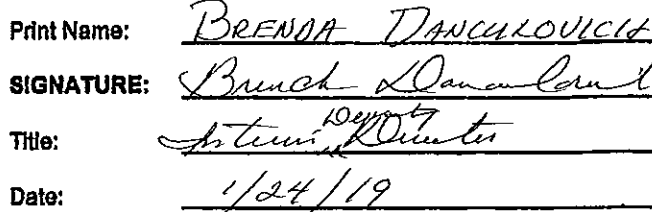 Print Name: BRENDA DANCULOVICH
SIGNATURE: Brenda
Title: Interim Deputy Director
Date: 1/24/19